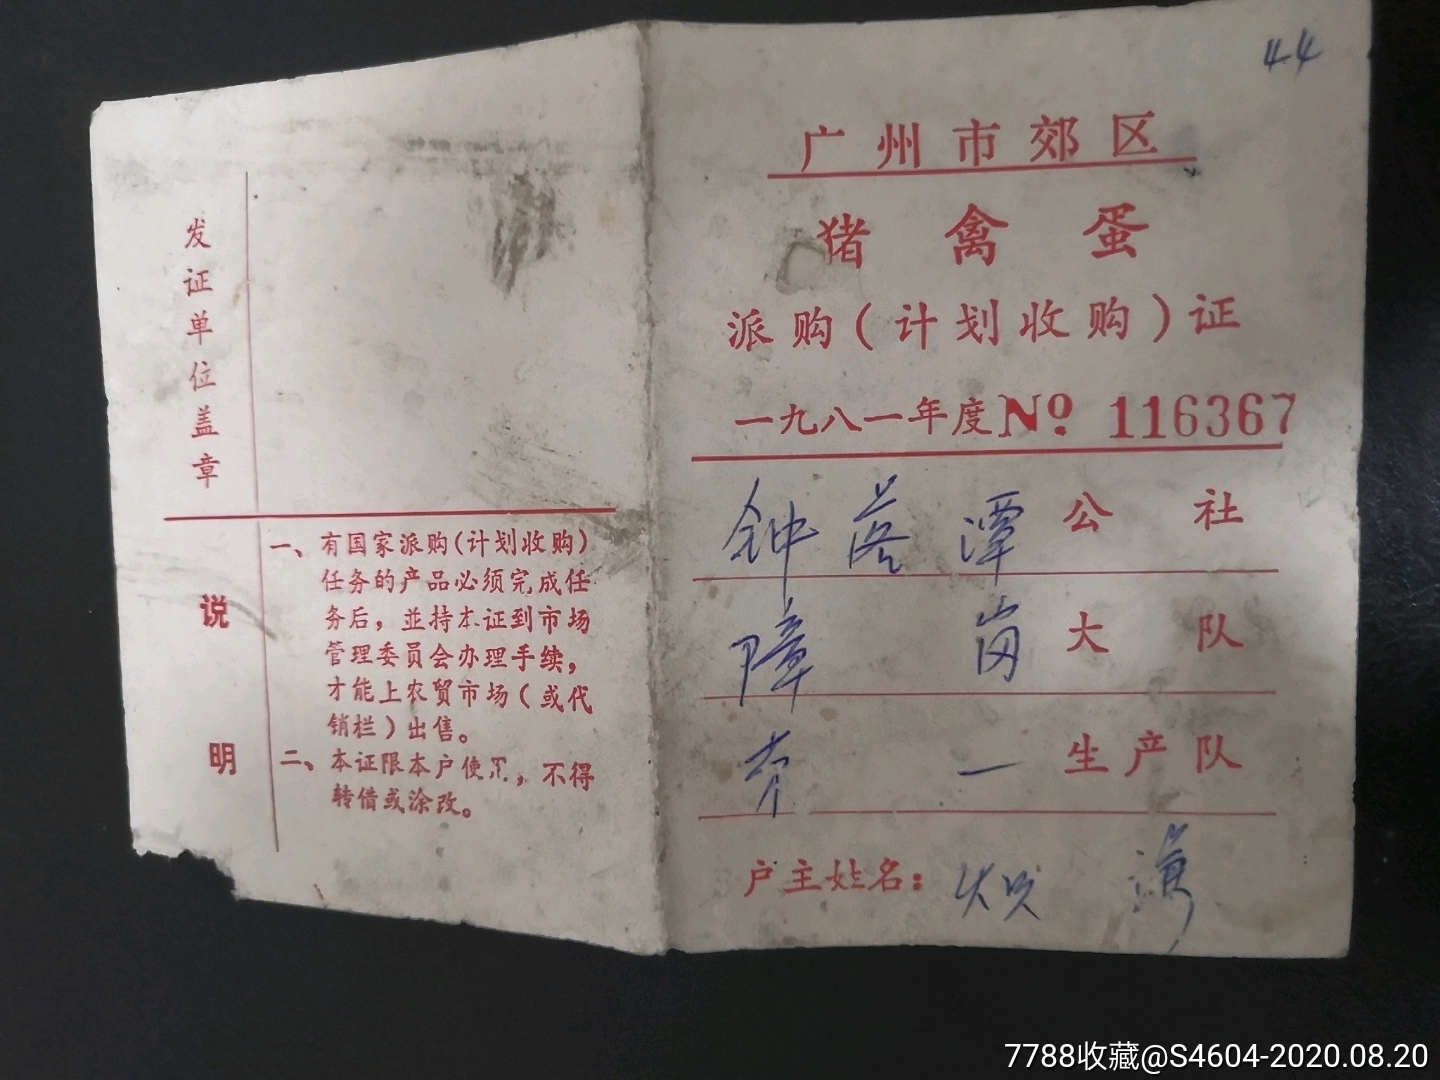 44
广州市郊区
猪禽蛋
派购(计划收购)证
一九八一年度№ 116367
钟落潭公社
障岗大队
第一生产队
户主姓名:
发证单位盖章
说明
一、有国家派购(计划收购)
任务的产品必须完成任
务后,並持本证到市场
管理委员会办理手续,
才能上农贸市场(或代
销栏)出售。
二、本证限本户使用,不得
转借或涂改。
7788收藏@S4604-2020.08.20